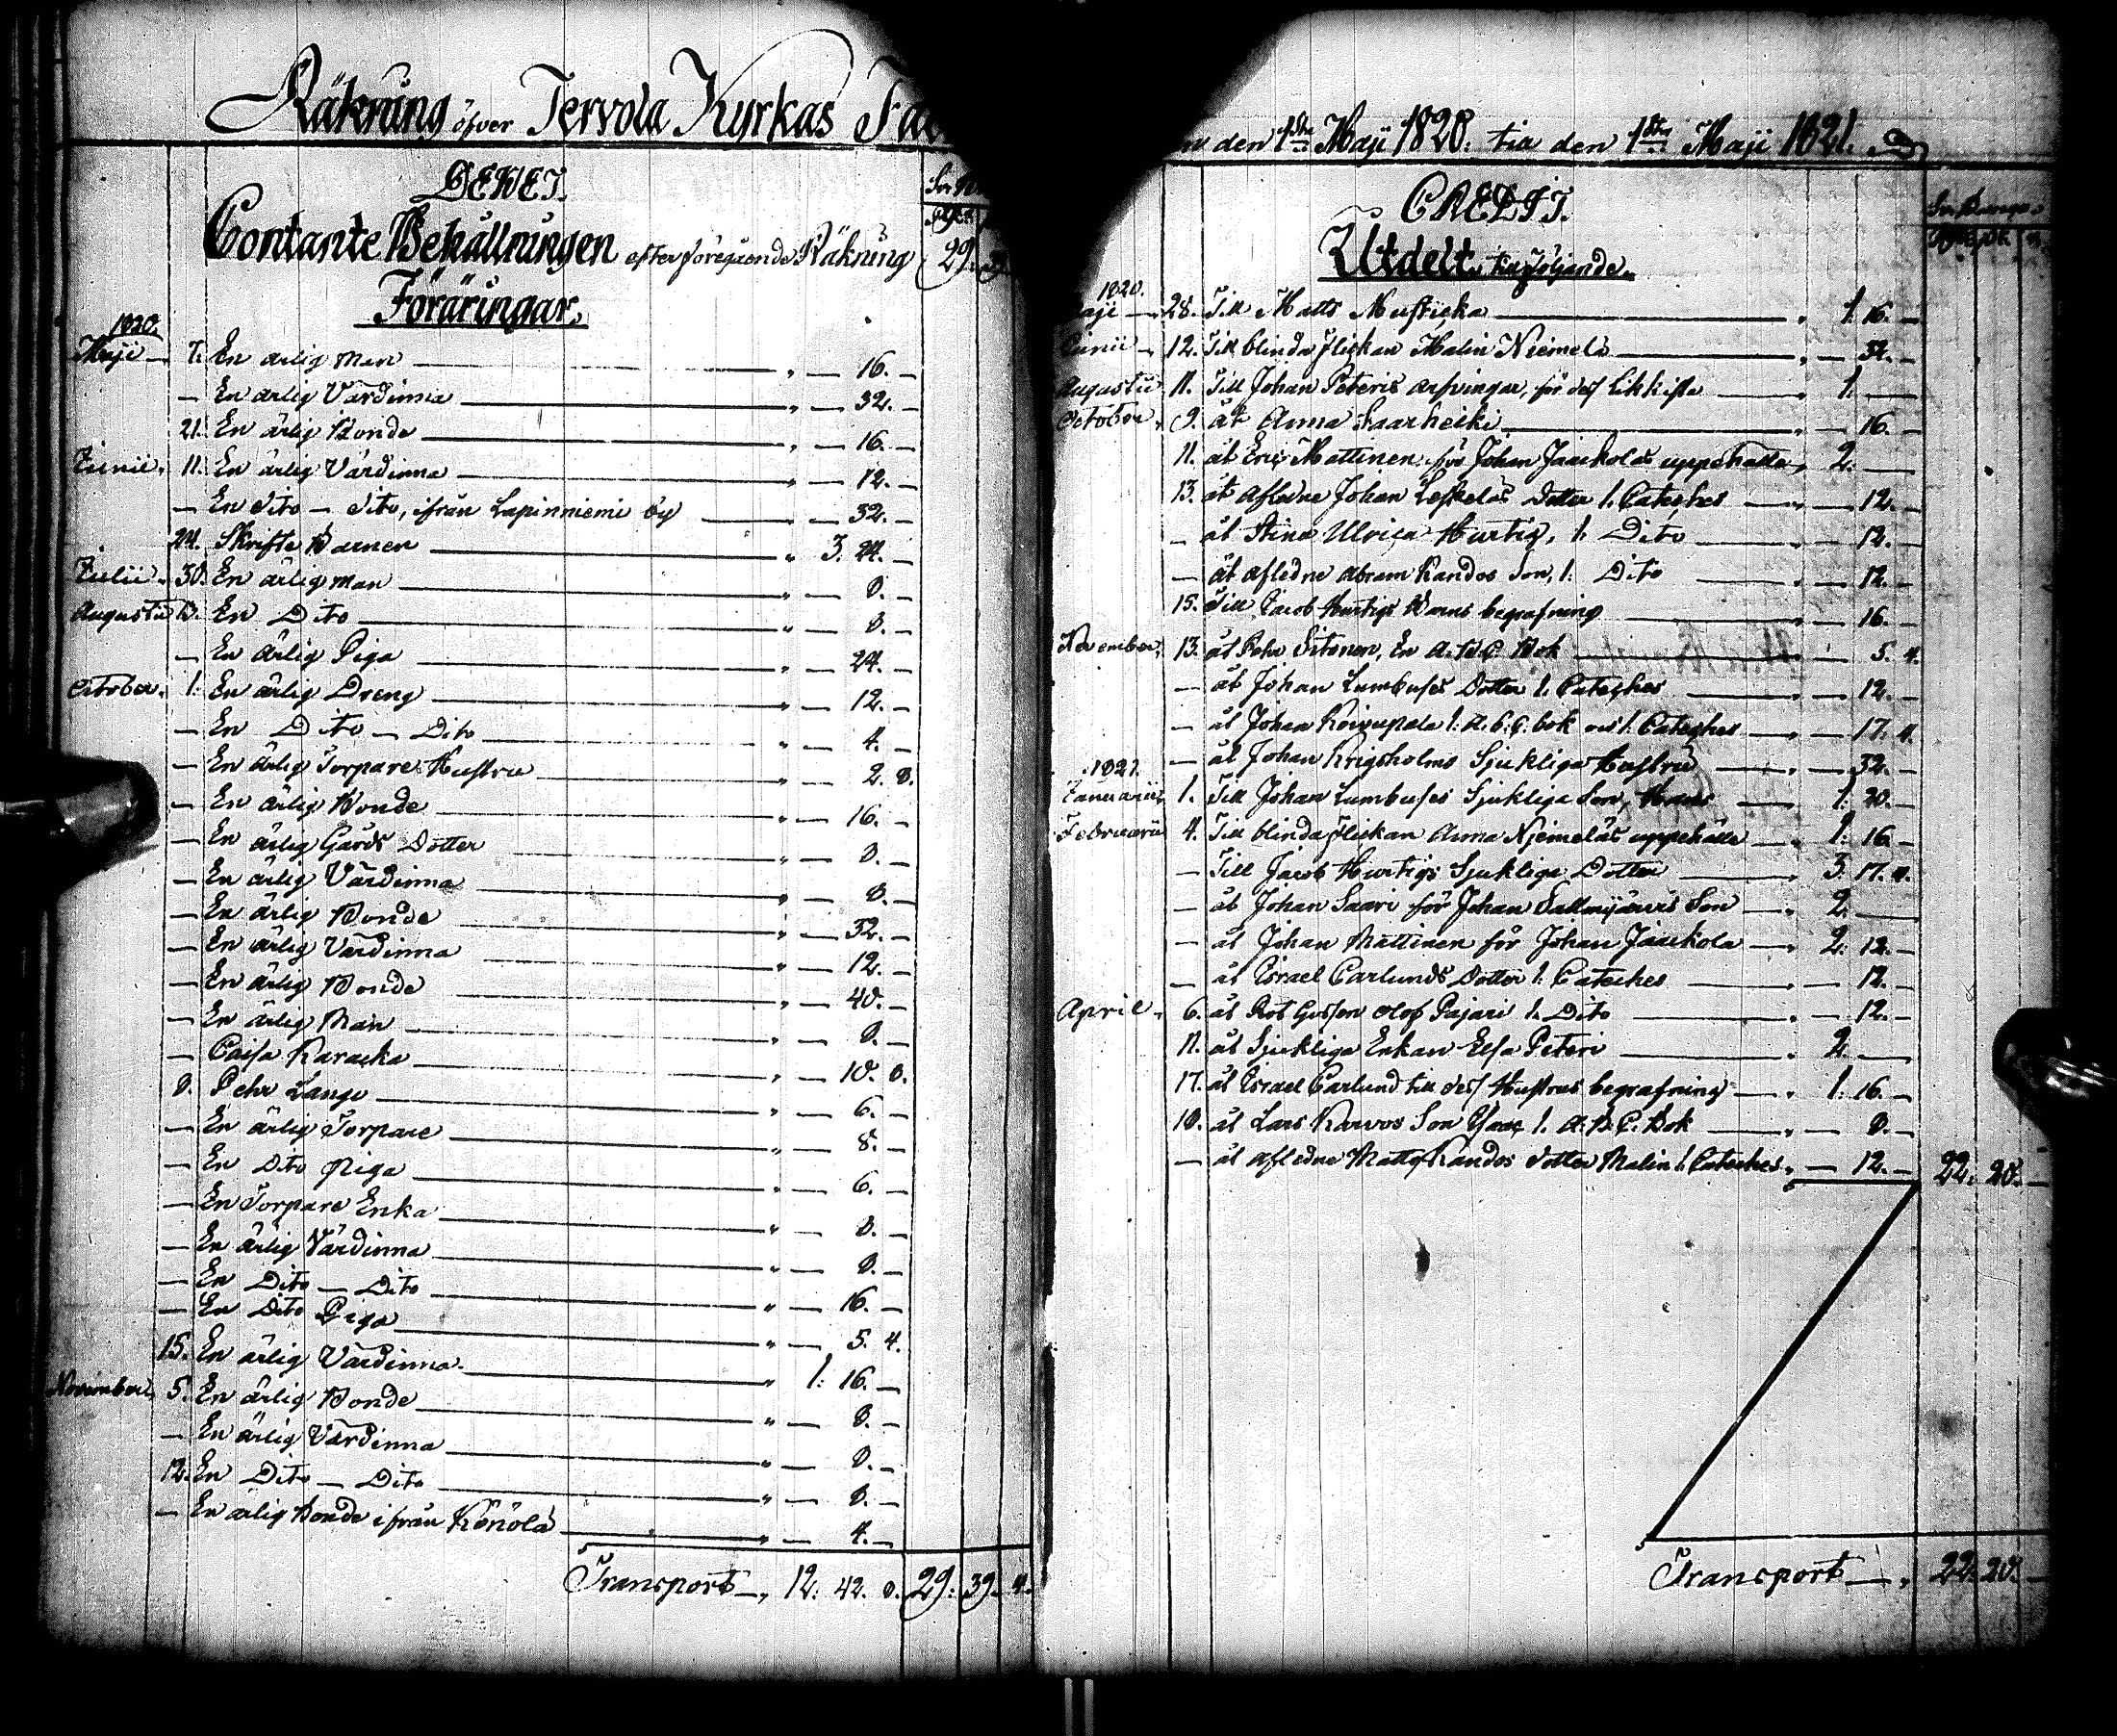 Räkning öfver Tervola Kyrkas
DEBET.
Contante Behållningen efter föregående Räkning 29.
Föräringar.
1820.
Maji — 7. En ärlig Man " — 16. —
— En ärlig Värdinna " — 32. —
21. En ärlig Bonde " — 16. —
Junii. 11. En ärlig Värdinna " — 12. —
— En dito — dito, ifrån Lapinniemi by " — 32. —
24. Skrifte Barnen " 3. 24. —
Julii. 30. En ärlig man " — 8. —
Augusti En Dito " — 8. —
— En ärlig Piga " — 24. —
October. 1. En ärlig Dreng " — 12. —
— En Dito — Dito " — 4. —
— En ärlig Torpare Hustru " — 2. 8.
— En ärlig Bonde " — 16. —
— En ärlig Gårds Dotter " — 8. —
— En ärlig Värdinna " — 8. —
— En ärlig Bonde " — 32. —
— En ärlig Värdinna " — 12. —
— En ärlig Bonde " — 40. —
— En ärlig Man " — 8. —
— Caisa Karacka " — 10. 8.
8. Pehr Lango " — 6. —
— En ärlig Torpare " — 8. —
— En Dito Piga " — 6. —
— En Torpare Enka " — 8. —
— En ärlig Värdinna " — 8. —
— En Dito — Dito " — 16. —
— En Dito Piga " — 5. 4.
15. En ärlig Värdinna " 1: 16. —
November 5. En ärlig Bonde " — 8. —
— En ärlig Värdinna " — 8. —
12. En Dito — Dito " — 8. —
— En ärlig Bonde ifrån Könölä " — 4. —
Transport — " 12: 42. 8. 29: 39. 4.
den 1sta Maji 1820. till den 1sta Maji 1821.
CREDIT.
Utdelt, till följande.
1820.
Maji — 28. Till Matts Musticka " 1: 16. —
Junii — 12. Till blinda flickan Malin Niemelä " — 32. —
Augusti 11. Till Johan Peteris arfvingar, för dess Likkista " 1: —
October. 9. åt Anna Saarheiki " — 16. —
11. åt Eric Mattinen för Johan Jaakolas uppehälle " 2: —
13. åt aflidne Johan Leskeläs Dotter 1. Cateches " — 12. —
— åt Stina Ulrica Hurtig, 1. Dito " — 12. —
— åt aflidne Abram Kandos Son, 1. Dito " — 12. —
15. Till Jacob Hurtigs Barns begrafning " — 16. —
November, 13. åt Pehr Sitonen, En A.B.C. Bok " — 5. 4.
— åt Johan Lumbuses Dotter 1. Cateches " — 12. —
— åt Johan Koivupala 1. A.B.C. bok och 1. Cateches " — 17. 4.
— åt Johan Krigsholms Sjukliga Hustru " — 32. —
1821.
Januarii, 1. Till Johan Lumbuses Sjukliga Son, " 1: 20. —
Februarii 4. Till blinda flickan Anna Niemeläs uppehälle " 1: 16. —
— Till Jacob Hurtigs Sjukliga Dotter " 3. 17. 4.
— åt Johan Saari för Johan Sallmijärvis Son " 2. —
— åt Johan Mattinen för Johan Jaakola " 2. 12. —
— åt Israel Carlunds Dotter 1. Cateches " — 12. —
April. 6. åt Olof Pajari 1. Dito " — 12. —
11. åt Sjukliga Enkan Elsa Peteri " 2. —
17. åt Israel Carlund till dess Hustrus begrafning " 1: 16. —
18. åt Lars Karvos Son 1. A.B.C. Bok " — 8. —
— åt aflidne Matts Kandos dotter Malin 1. Cateches " — 12. — 22. 20. —
Transport — " 22. 20. —